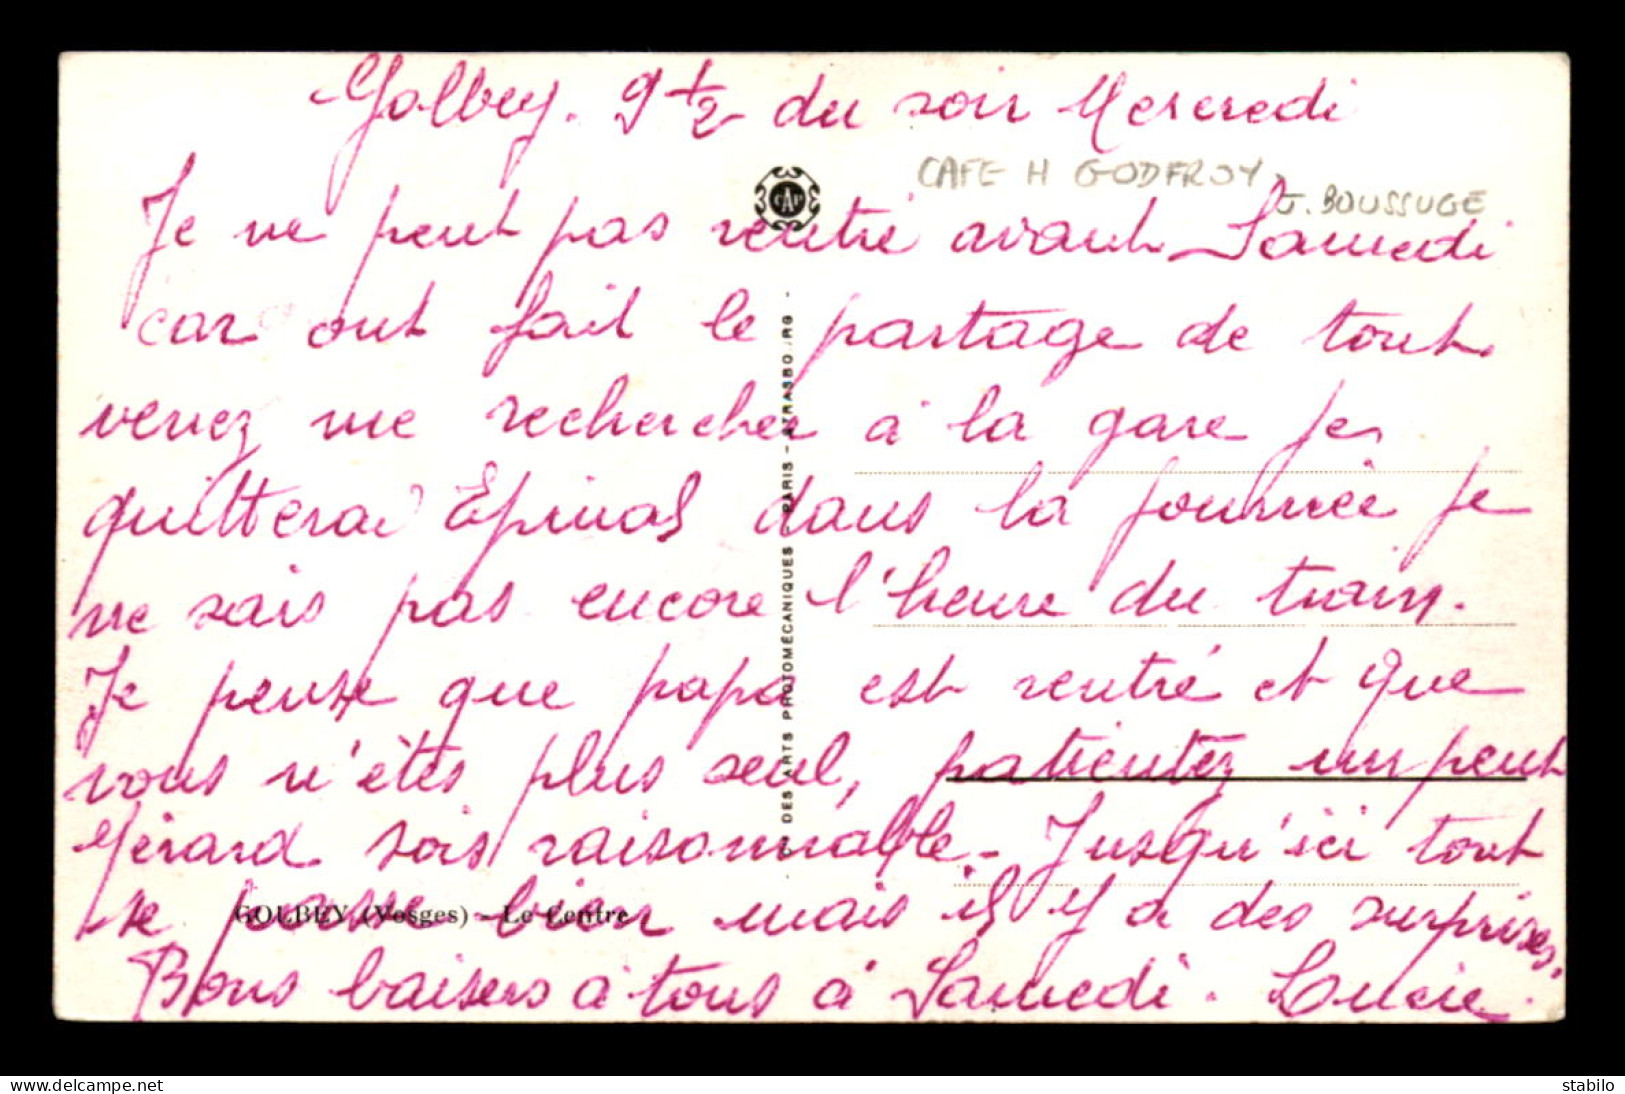 Golbey. 9 1/2 du soir Mercredi
CAFE H GODFROY
J. BOUSSUGE
CAP
Je ne peut pas rentré avant Samedi
car ont fait le partage de tout
venez me rechercher à la gare je
quitterai Epinal dans la journée je
ne sais pas encore l'heure du train.
Je pense que papa est rentré et que
vous n'êtes plus seul, patientez un peut
Gérard sois raisonnable - Jusqu'ici tout
se passe bien mais il y a des surprises.
Bons baisers à tous à Samedi. Lucie.
GOLBEY (Vosges) - Le Centre
DES ARTS PHOTOMÉCANIQUES - PARIS - STRASBOURG -
delcampe.net
stabilo